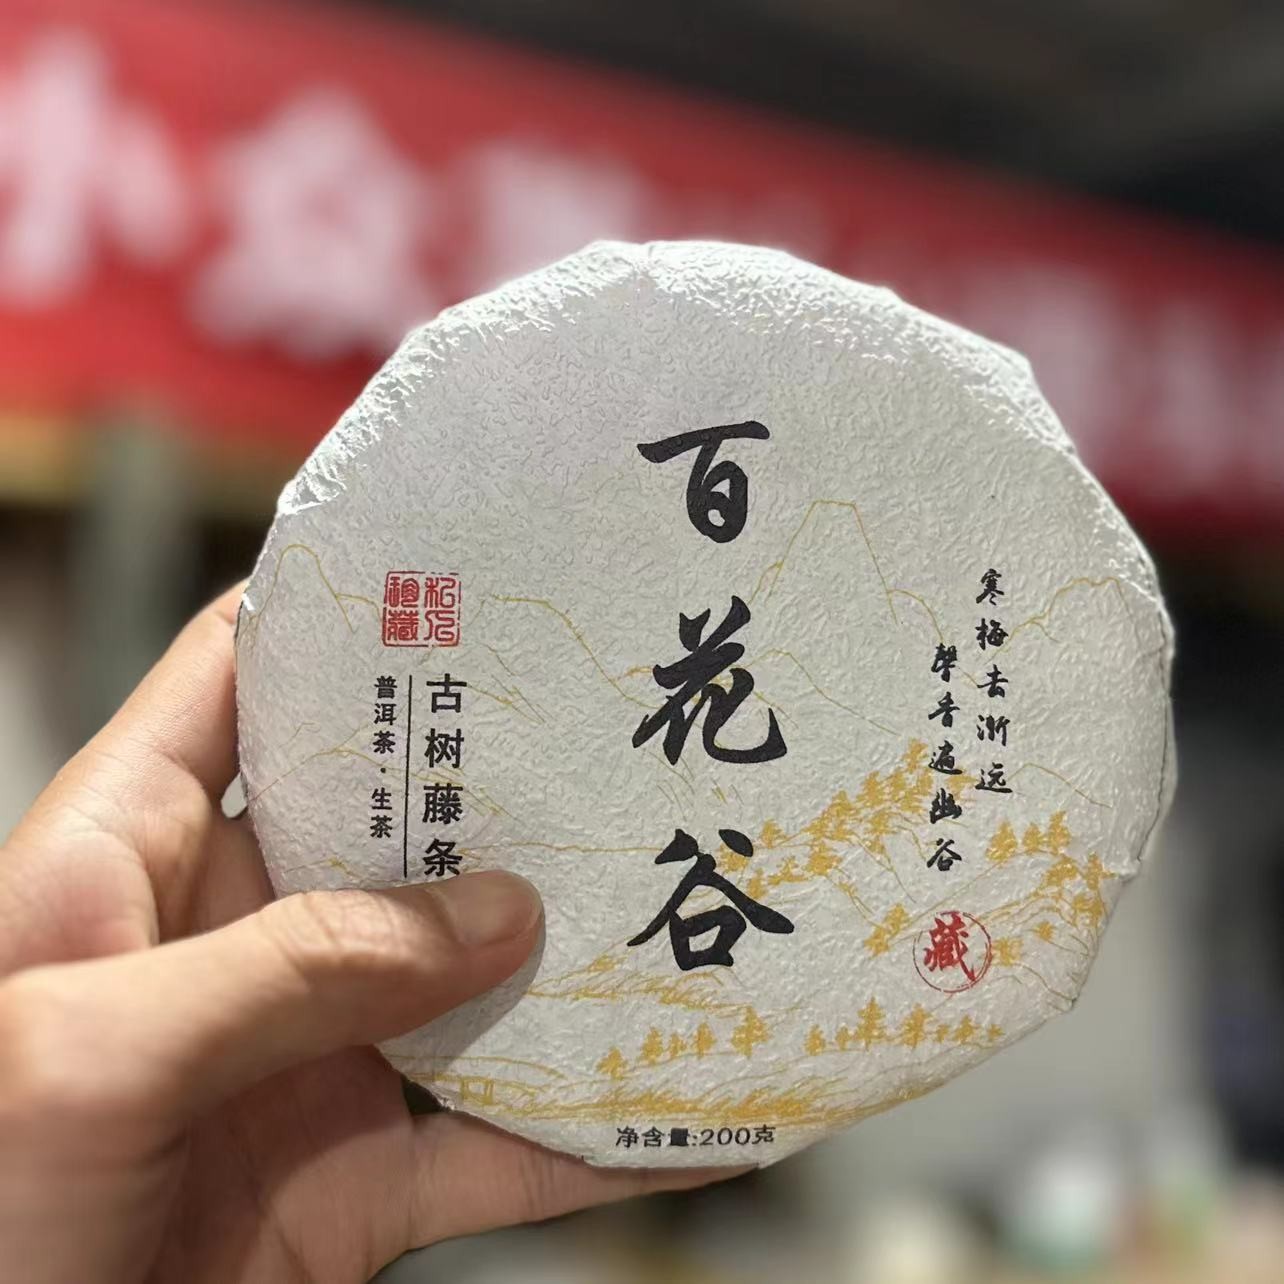 百花谷
寒梅去渐远
馨香遍幽谷
藏
私人珍藏
古树藤条
普洱茶·生茶
净含量:200克